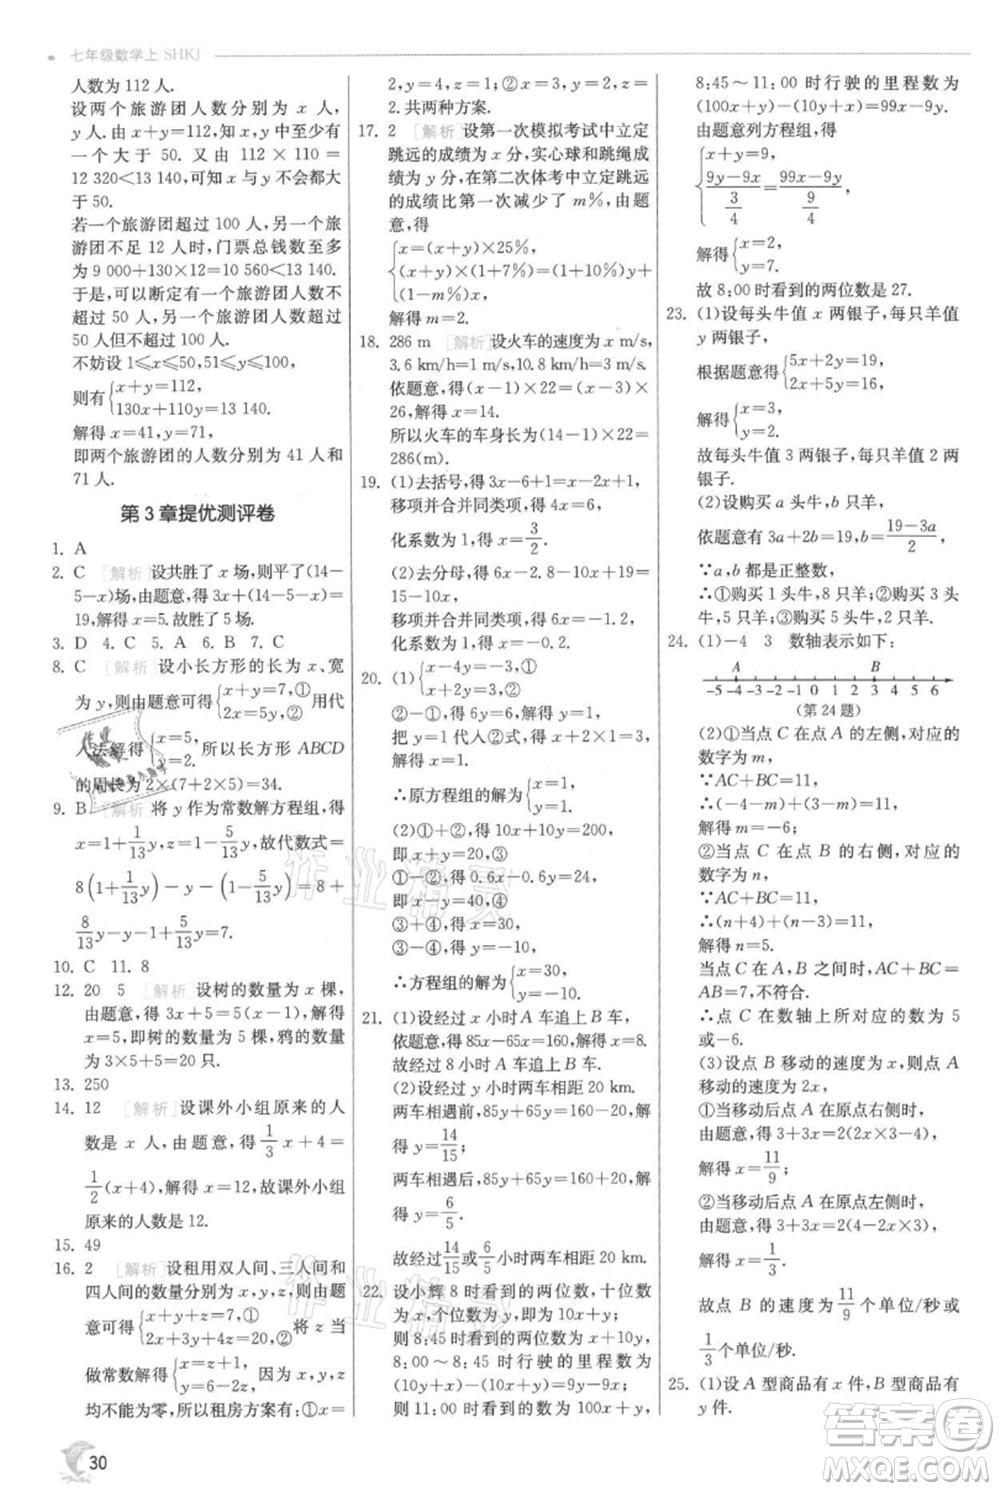 七年级数学上 SHKJ
人数为 112 人.
设两个旅游团人数分别为 x 人,
y 人. 由 x+y=112, 知 x,y 中有
一个大于 50. 又由 112×110=
12 320<13 140, 可知不会都大
于 50.
若一个旅游团超过 100 人,另一个
旅游团不足 12 人,门票总钱数至多
为 9 000+130×12=10 560<13 140.
于是一个旅游团人数不超过
50 人,另一个旅游团人数超过
50 人但不超过 100 人.
不妨设 1≤x≤50,51≤y≤100,
则有{x+y=112,
130x+110y=13 140.
解得 x=41,y=71,
即两个旅游团的人数分别为 41 人和
71 人.
第 3 章提优测评卷
1. A
2. C [解析] 设共胜了 x 场,则平了(14-
5-x)场,由题意得 3x+(14-5-x)=
19,解得 x=5.故胜了 5 场.
3. D 4. C 5. A 6. B 7. C
8. C [解析] 设小长方形的长为 x、宽
为 y,由题意可得{x+y=7,①
2x=5y,②
用代
入法解得{x=5,
y=2.
所以长方形 ABCD
的周长为 2×(7+2+5)=34.
9. B [解析] 将 y 作为常数解方程组,得
x=1+1/13 y,z=1-5/13 y,故代数式=
8(1+1/13 y)-y-(1-5/13 y)=8+
8/13 y-y-1+5/13 y=7.
10. C 11. 8
12. 20 5 [解析] 设树的数量为 x 棵,
由题意,得 3x+5=5(x-1),解得
x=5,即树的数量为 5 棵,鸦的数量
为 3×5+5=20 只.
13. 250
14. 12 [解析] 设课外小组原来的人
数是 x 人,由题意,得 1/3 x+4=
1/2(x+4),解得 x=12,故课外小组
原来的人数是 12.
15. 49
16. 2 [解析] 设租用双人间、三人间和
四人间的数量分别为 x,y,z,则由题
意可得{x+y+z=7,①
2x+3y+4z=20.②
将 z 当
做常数解得{x=z+1,
y=6-2z,
又因 x,y,z
均不能为零,所以租房方案有:①x=
2,y=4,z=1;②x=3,y=2,z=
2.共两种方案.
17. 2 [解析] 设第一次模拟考试中立定
跳远的成绩为 x 分,实心球和跳绳成
绩为 y 分,第二次体考中立定跳远
的成绩比第一次减少了 m%,由题
意,得
{x=(x+y)×25%,
(x+y)×(1+7%)=(1+10%)y+
(1-m%)x.
解得 m=2.
18. 286 m [解析] 设火车的速度为 x m/s,
3.6 km/h=1 m/s,10.8 km/h=3 m/s.
依题意,得(x-1)×22=(x-3)×
26,解得 x=14.
所以火车的车身长为(14-1)×22=
286(m).
19. (1)去括号,得 3x-6+1=x-2,
移项并合并同类项,得 2x=3,
化系数为 1,得 x=3/2.
(2)去分母,得 6x-2.8-10x+19=17,
移项并合并同类项,得-4x=0.8,
化系数为 1,得 x=-0.2.
20. (1){x-4y=-3,①
x+2y=3,②
②-①,得 6y=6,解得 y=1,
把 y=1 代入②式,得 x+2=3,
解得 x=1.
∴原方程组的解为{x=1,
y=1.
(2)①+②,得 10x+10y=200,
即 x+y=20,③
②-①,得 6x-6y=240,
即 x-y=40,④
③+④,得 x=30,
③-④,得 y=-10,
∴方程组的解为{x=30,
y=-10.
21. (1)设经过 x 小时 A 车追上 B 车,
依题意,得 85x-65x=160,解得 x=8.
故经过 8 小时 A 车追上 B 车.
(2)设经过 y 小时两车相距 20 km.
两车相遇前,85y+65y=160-20,解
得 y=14/15;
两车相遇后,85y+65y=160+20,解
得 y=6/5.
故经过 14/15 或 6/5 小时两车相距 20 km.
22. 设小辉 8 时看到的两位数,十位数
为 x,个位数为 y,
则 8:45 时看到的两位数为 10y+x,
8:00~8:45 时行驶的里程数为
(10y+x)-(10x+y)=9y-9x;
则 11:00 时看到的数为 100x+y,
8:45~11:00 时行驶的里程数为
(100x+y)-(10y+x)=99x-9y.
由题意列方程组,得
{x+y=9,
(9y-9x)/(3/4)=(99x-9y)/(9/4),
解得{x=2,
y=7.
故 8:00 时看到的两位数是 27.
23. (1)设每头牛值 x 两银子,每只羊值
y 两银子,
根据题意得{5x+2y=19,
2x+5y=16,
解得{x=3,
y=2.
故每头牛值 3 两银子,每只羊值 2 两银
子.
(2)设购买 a 头牛,b 只羊,
依题意有 3a+2b=19,b=(19-3a)/2,
∵a,b 都是正整数,
∴①购买 1 头牛,8 只羊;②购买 3 头
牛,5 只羊;③购买 5 头牛,2 只羊.
24. (1)-4 3 数轴表示如下:
A B
-5 -4 -3 -2 -1 0 1 2 3 4 5 6
(第 24 题)
(2)①当点 C 在点 A 的左侧,对应的
数字为 m,
∵AC+BC=11,
∴(-4-m)+(3-m)=11,
解得 m=-6;
②当点 C 在点 B 的右侧,对应的
数字为 n,
∵AC+BC=11,
∴(n+4)+(n-3)=11,
解得 n=5.
当点 C 在 A,B 之间时,AC+BC=
AB=7,不符合.
∴点 C 在数轴上所对应的数为 5
或-6.
(3)设点 B 移动的速度为 x,则点 A
移动的速度为 2x+2,
①当移动后点 A 在原点右侧时,
由题意,得 3+3x=2(2+3x)-4,
解得 x=11/9;
②当移动后点 A 在原点左侧时,
由题意,得 3+3x=4-2(2+3x),
解得 x=1/3.
故点 B 的速度为 11/9 个单位/秒或
1/3 个单位/秒.
25. (1)设 A 型商品有 x 件,B 型商品有
y 件.
30
作业精灵
作业精灵
答案圈
MXQE.COM